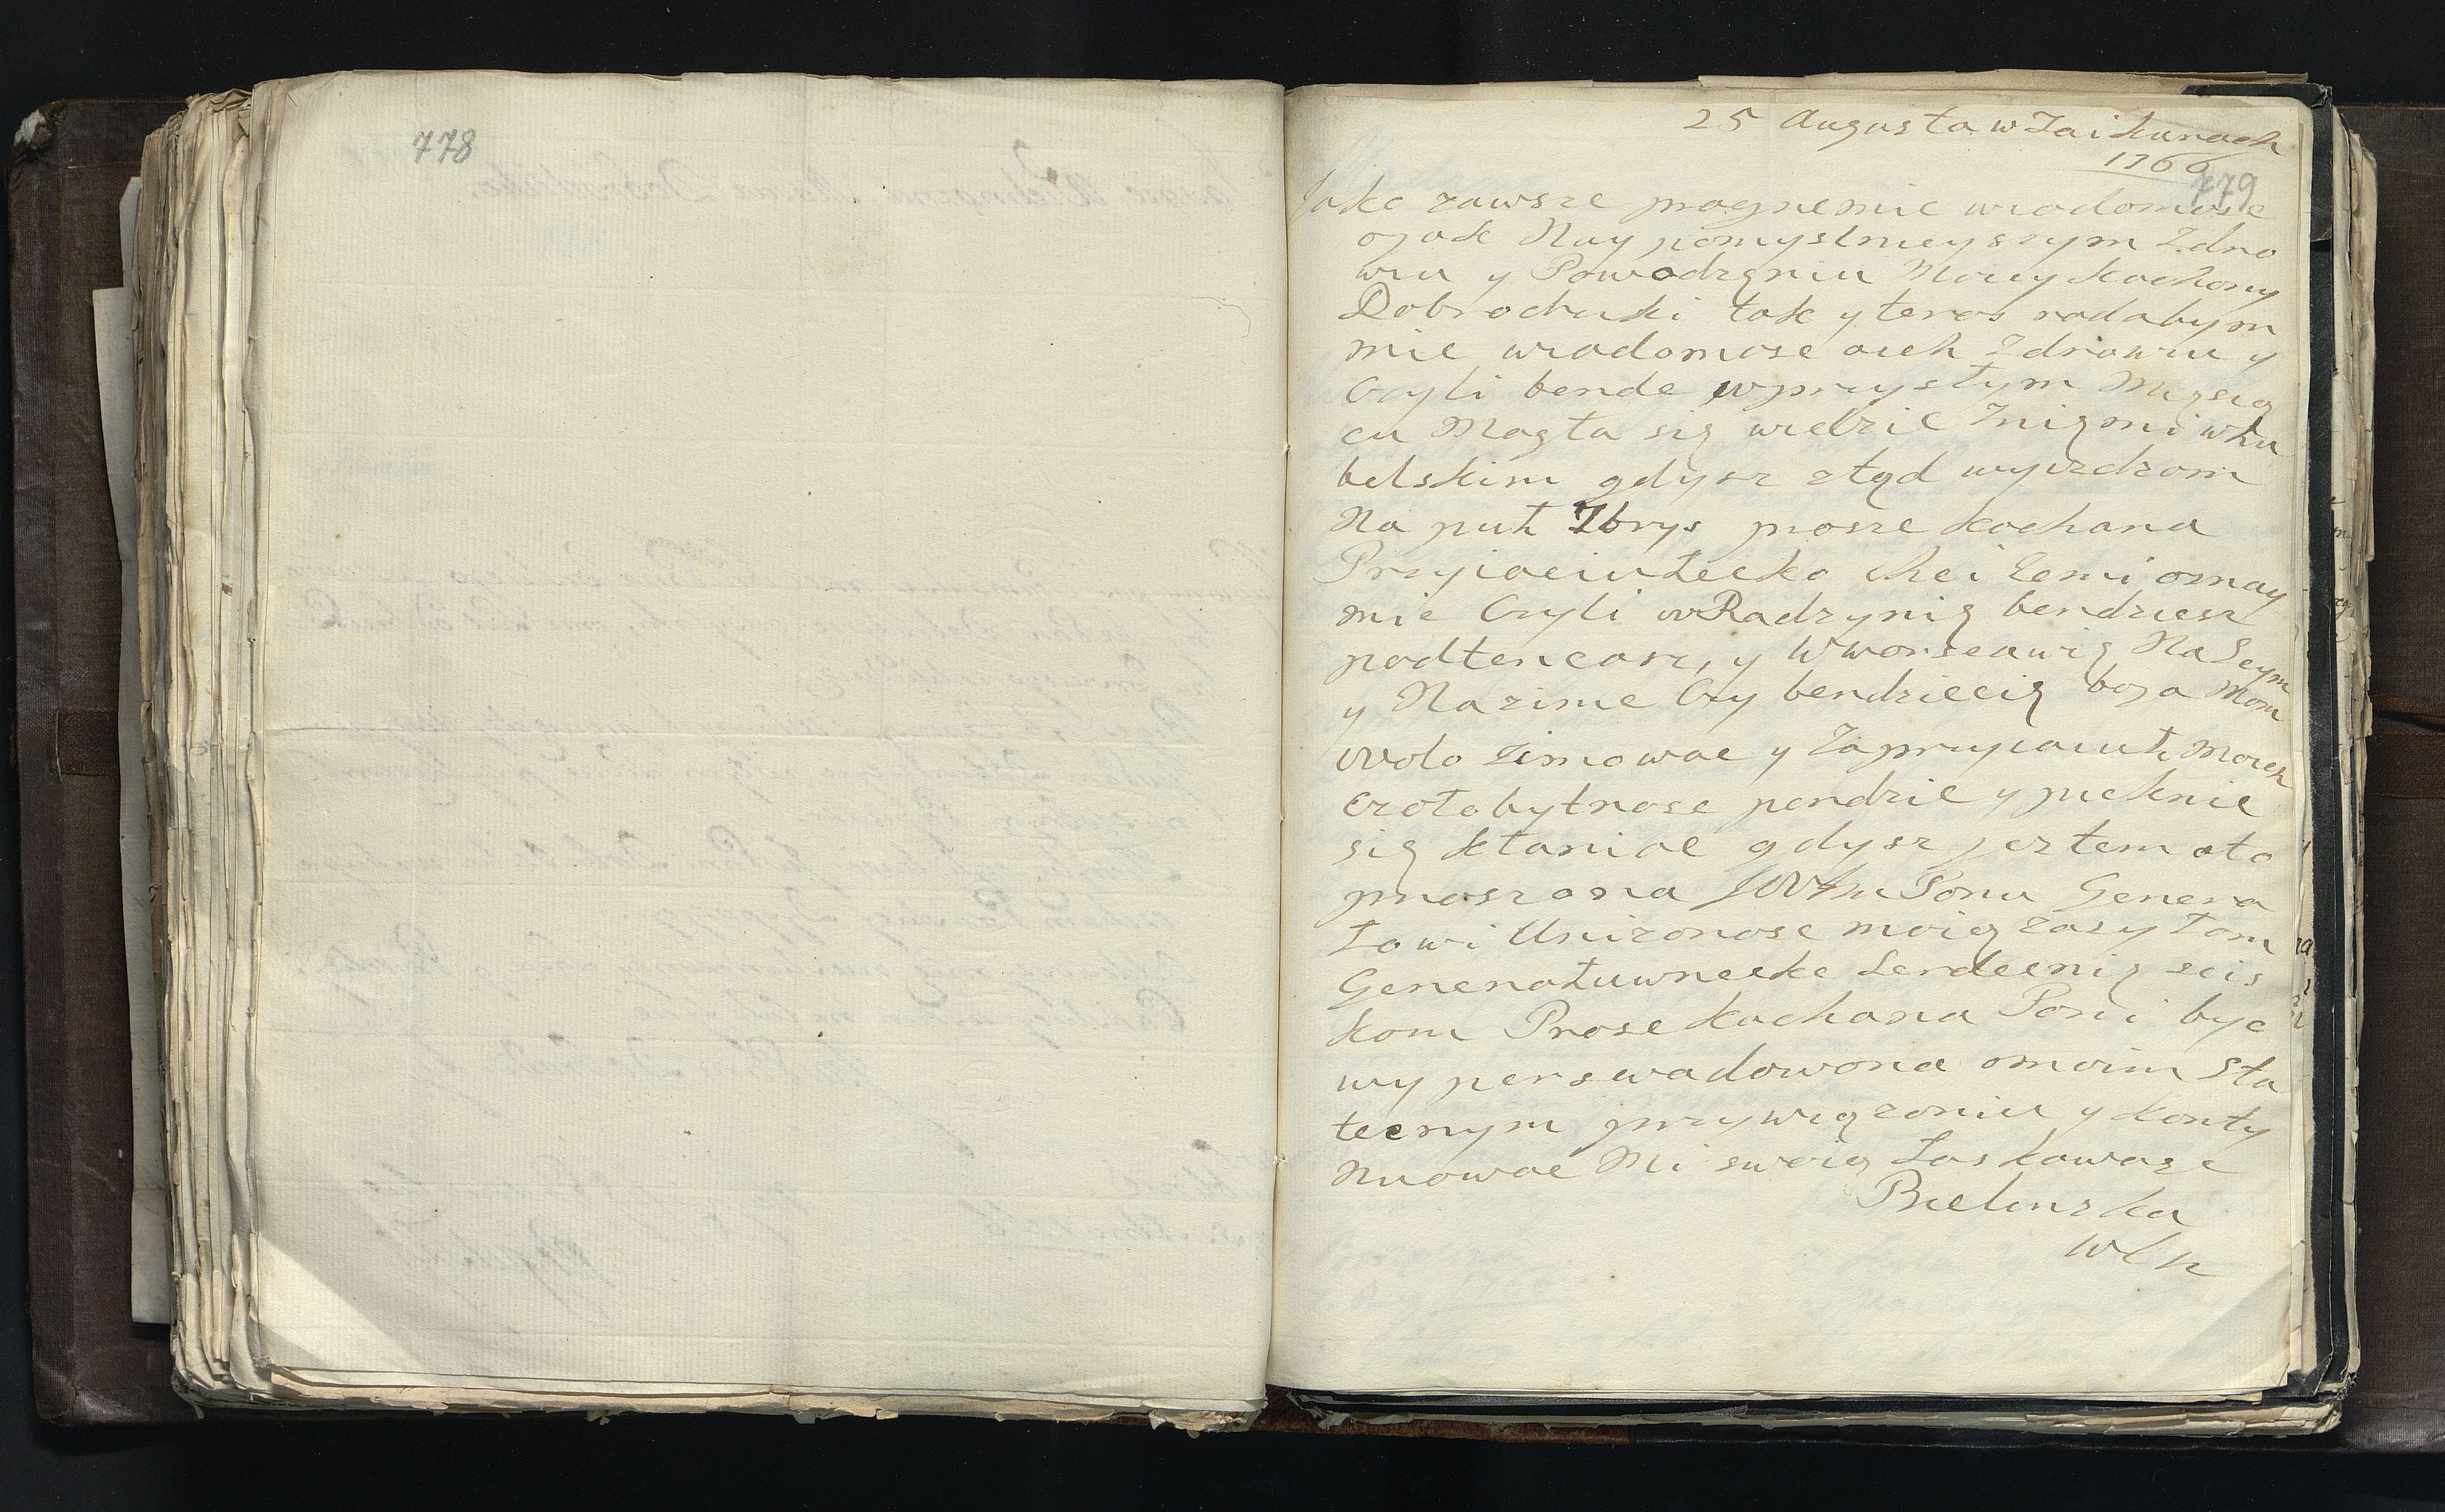 778
25 Augusta w Zaikunach
1766
779
Jako zawsze pragnemie wiadomosc
o jak Nay pomyslnieyszym Zdro
wiu y Powodzęniu Moiey kachany
Dobrochuki tak y teras radabym
mic wiadomosc o ich Zdrowiu y
Czyli bende w przystym Mięsią
cu Magta się wedzic Znięmi w Lu
belskim gdysz ztąd wyiezdzam
Na puł 7brys prosze kachana
Przyiaciuteczko chci Zemi oznay
mic Czyli w Radzynię bendziesz
podtenczasz, y W worszawię Na Seym
y Na zime Czy bendziecię boja Mam
wola zimowac y Zaprzyiaciuł Moich
czołobytnosc pendzic y pieknie
się kłaniac gdysz jeztem oto
proszana JWWmPanu Genera
Łowi Unizonosc moią zasyłam
Generałuwneczke Serdecznię scis
kam Prose kachana Pani byc
wyperswadowona omoim sta
tecznym przywiązaniu y konty
Nuowac Mi swoią Łaskawosc
Bielinzka